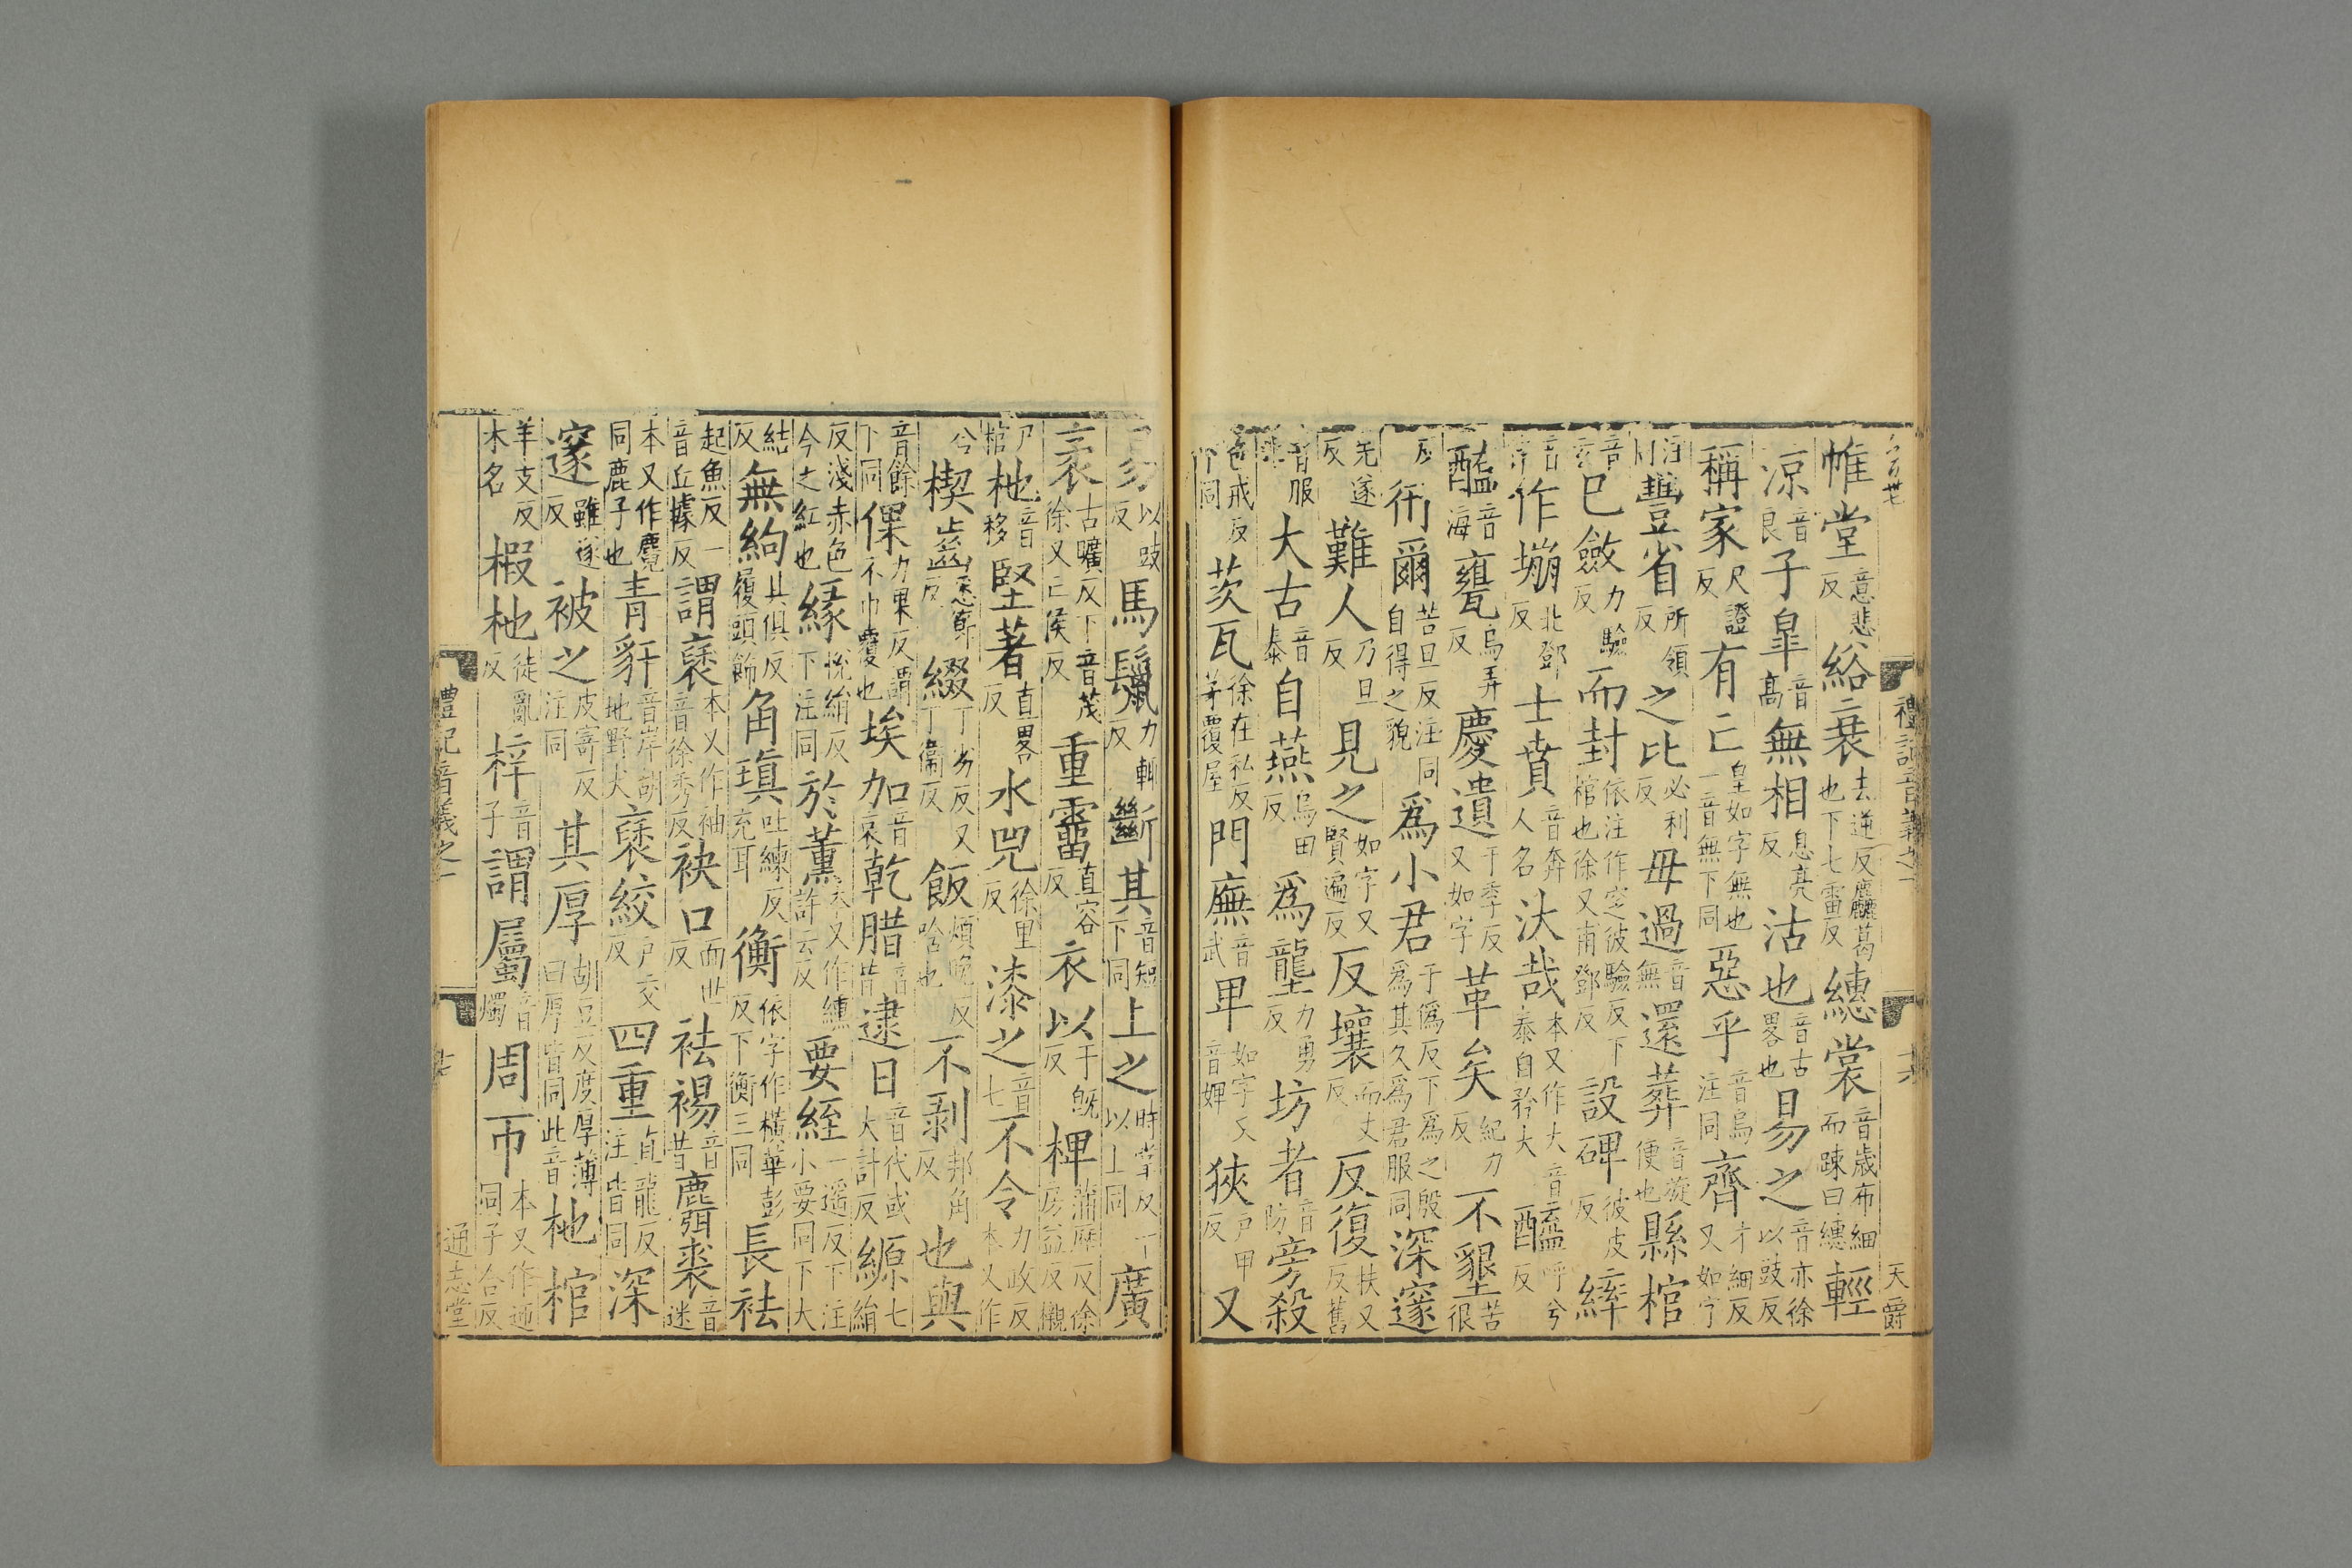 禮記音義之一
六
天爵
帷堂意悲反綌衰去逆反麤葛也下七雷反繐裳音歲布細而踈曰繐輕
涼音良子臯音高無相息亮反沽也音古畧也易之音亦徐以豉反
稱家尺證反有亡皇如字無也一音無下同惡乎音烏注同齊才細反又如字
豐省所領反之比必利反毋過音無還葬音旋便也縣棺
音玄已斂力驗反而封依注作窆彼驗反下棺也徐又甫鄧反設碑彼皮反繂
音律作堋北鄧反士賁音奔人名汰哉本又作大音泰自矜大醯呼兮反
醢音海甕烏弄反慶遺于季反又如字革矣紀力反不墾苦很
反衎爾苦旦反注同自得之貌爲小君于僞反下爲之殷爲其久爲君服同深邃
先遂反難人乃旦反見之如字又賢遍反反壤而丈反反復扶又反舊
音服大古音泰自燕烏田反爲壟力勇反坊者音防旁殺
色戒反下同茨瓦徐在私反茅覆屋門廡音武卑如字又音婢狹戶甲反又
易以豉反馬鬛力輒反斷其音短下同上之時掌反下以上同廣
袤古曠反下音茂徐又亡侯反重霤直容反衣以于旣反椑蒲歷反徐房益反櫬
尸棺杝音移堅著直畧反水兕徐里反漆之音七不令力政反本又作
兮楔齒悉節反綴丁劣反又丁衞反飯煩晚反唅也不剥邦角反也與
音餘下同倮力果反謂不巾覆也埃加音哀乾腊音昔逮日音代或大計反縓七絹
反淺赤色今之紅也緣悅絹反下注同於薰本又作纁許云反要絰一遥反下注小要同下大
結反無絇其俱反履頭飾角瑱吐練反充耳衡依字作橫華彭反下衡三同長袪
起魚反一音丘據反謂褎本又作袖音徐秀反袂口而世反袪裼音昔麛裘音迷
本又作麑同鹿子也青豻音岸胡地野犬褎絞戶交反四重直龍反注皆同深
邃雖遂反被之皮寄反注同其厚胡豆反度厚薄曰厚皆同此音杝棺
羊支反木名椵杝徒亂反梓音子謂屬音燭周帀本又作迊同子合反
禮記音義之一
七
通志堂